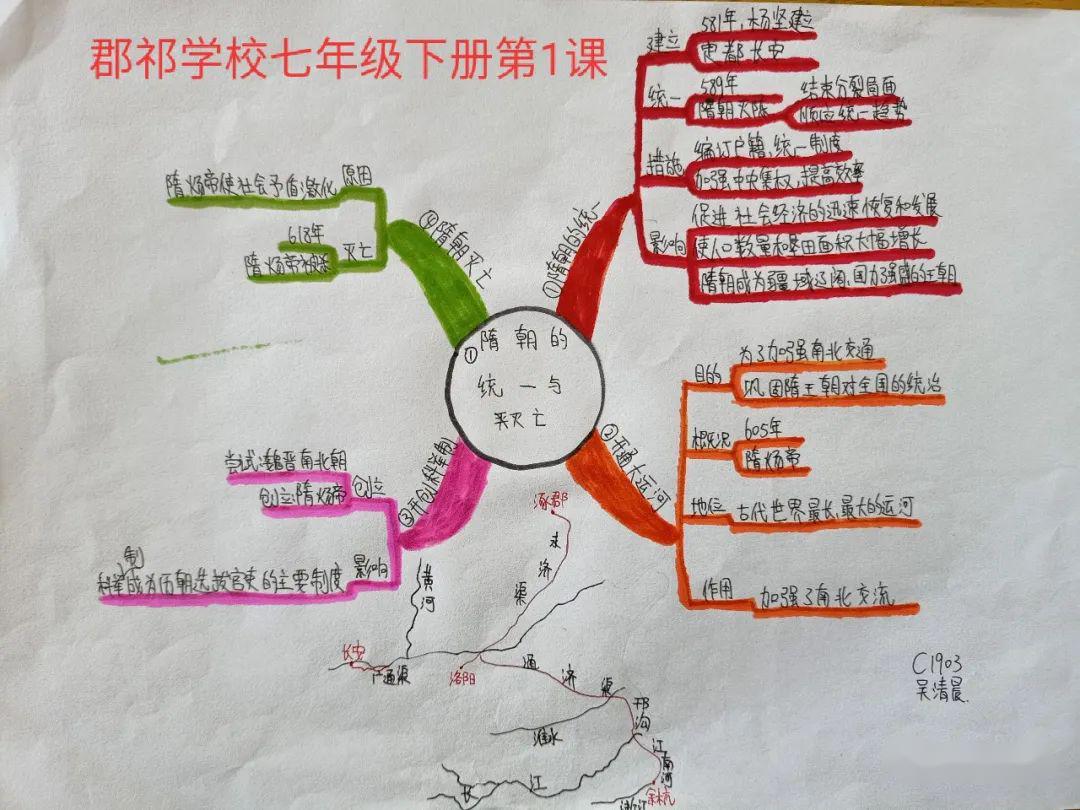 郡祁学校七年级下册第1课
①隋朝的
统一与
灭亡
①隋朝的统一
建立
581年,杨坚建立
定都长安
统一
589年
隋朝灭陈
结束分裂局面
顺应统一趋势
措施
编订户籍,统一制度
加强中央集权,提高效率
影响
促进社会经济的迅速恢复和发展
使人口数量和垦田面积大幅增长
隋朝成为疆域辽阔,国力强盛的王朝
②开通大运河
目的
为了加强南北交通
巩固隋王朝对全国的统治
概况
605年
隋炀帝
地位
古代世界最长,最大的运河
作用
加强了南北交流
③开创科举制
创立
尝试:魏晋南北朝
创立:隋炀帝
影响
科举制成为历朝选拔官吏的主要制度
④隋朝灭亡
原因
隋炀帝使社会矛盾激化
灭亡
618年
隋炀帝被杀
涿郡
永济渠
黄河
长安
广通渠
洛阳
通济渠
邗沟
淮水
长江
江南河
余杭
浙江
C1903
吴清晨